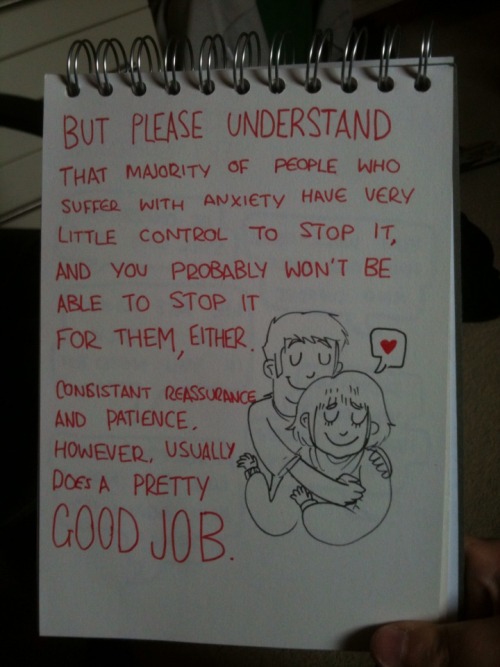 BUT PLEASE UNDERSTAND
THAT MAJORITY OF PEOPLE WHO
SUFFER WITH ANXIETY HAVE VERY
LITTLE CONTROL TO STOP IT,
AND YOU PROBABLY WON'T BE
ABLE TO STOP IT
FOR THEM, EITHER.
CONSISTANT REASSURANCE
AND PATIENCE.
HOWEVER, USUALLY
DOES A PRETTY
GOOD JOB.